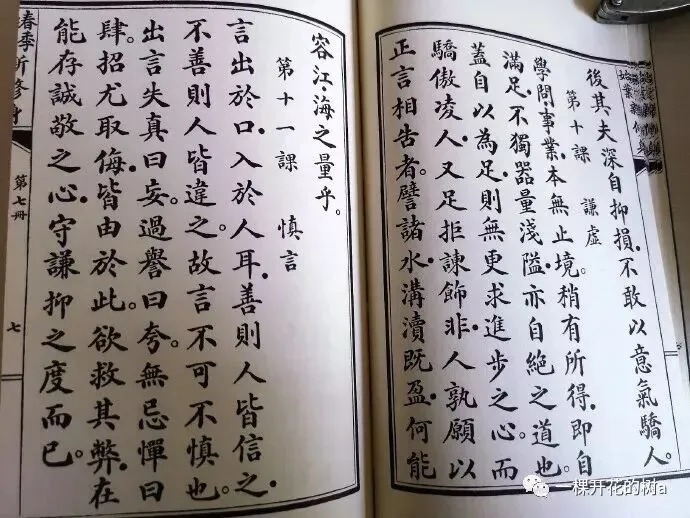 後其夫深自抑損.不敢以意氣驕人。
第十課　謙虛
學問.事業.本無止境.稍有所得.即自
滿足.不獨器量淺隘.亦自絕之道也。
蓋自以為足.則無更求進步之心.而
驕傲凌人.又足拒諫飾非.人孰願以
正言相告者.譬諸水.溝瀆既盈.何能
容江.海之量乎。
第十一課　慎言
言出於口.入於人耳.善則人皆信之.
不善則人皆違之。故言不可不慎也。
出言失真曰妄。過譽曰夸。無忌憚曰
肆.招尤取侮.皆由於此.欲救其弊.在
能存誠敬之心.守謙抑之度而已。
春季新修身
第七冊
七
一棵开花的树a